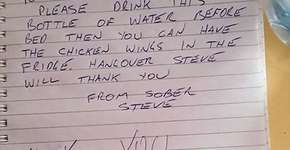 PLEASE DRINK THIS
BOTTLE OF WATER BEFORE
BED THEN YOU CAN HAVE
THE CHICKEN WINGS IN THE
FRIDGE HANGOVER STEVE
WILL THANK YOU
FROM SOBER
STEVE